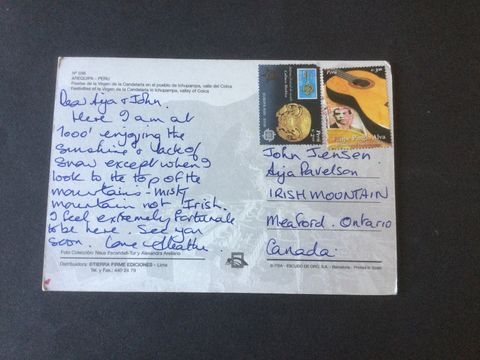 Nº 036
AREQUIPA - PERU
Fiestas de la Virgen de la Candelaria en el pueblo de Ichupampa, valle del Colca
Festivities of the Virgen de la Candelaria in Ichupampa, valley of Colca
Dear Aija & John.
Here I am at
1000' enjoying the
sunshine & lack of
snow except when I
look to the top of the
mountains - misty
mountain not Irish.
I feel extremely fortunate
to be here. See you
soon. Love Heather.
Foto Colección: Neus Escandell-Tur y Alexandra Arellano
Distribuidora: ©TIERRA FIRME EDICIONES - Lima
Tel. y Fax.: 440 28 79
Perú
Perú
Felipe Pinglo Alva
John Jensen
Aija Pavelson
IRISH MOUNTAIN
Meaford. Ontario
Canada.
© FISA - ESCUDO DE ORO, S.A. - Barcelona - Printed in Spain